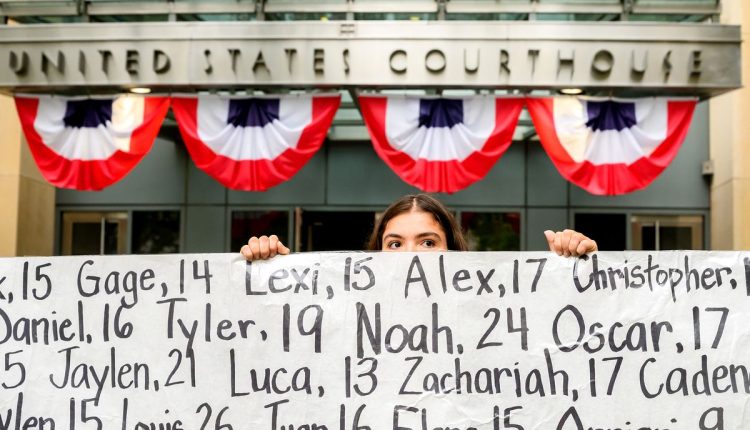 UNITED STATES COURTHOUSE
, 15 Gage, 14 Lexi, 15 Alex, 17 Christopher, 1
Daniel, 16 Tyler, 19 Noah, 24 Oscar, 17
5 Jaylen, 21 Luca, 13 Zachariah, 17 Caden
15 Louis, 26 Juan, 16 15 9